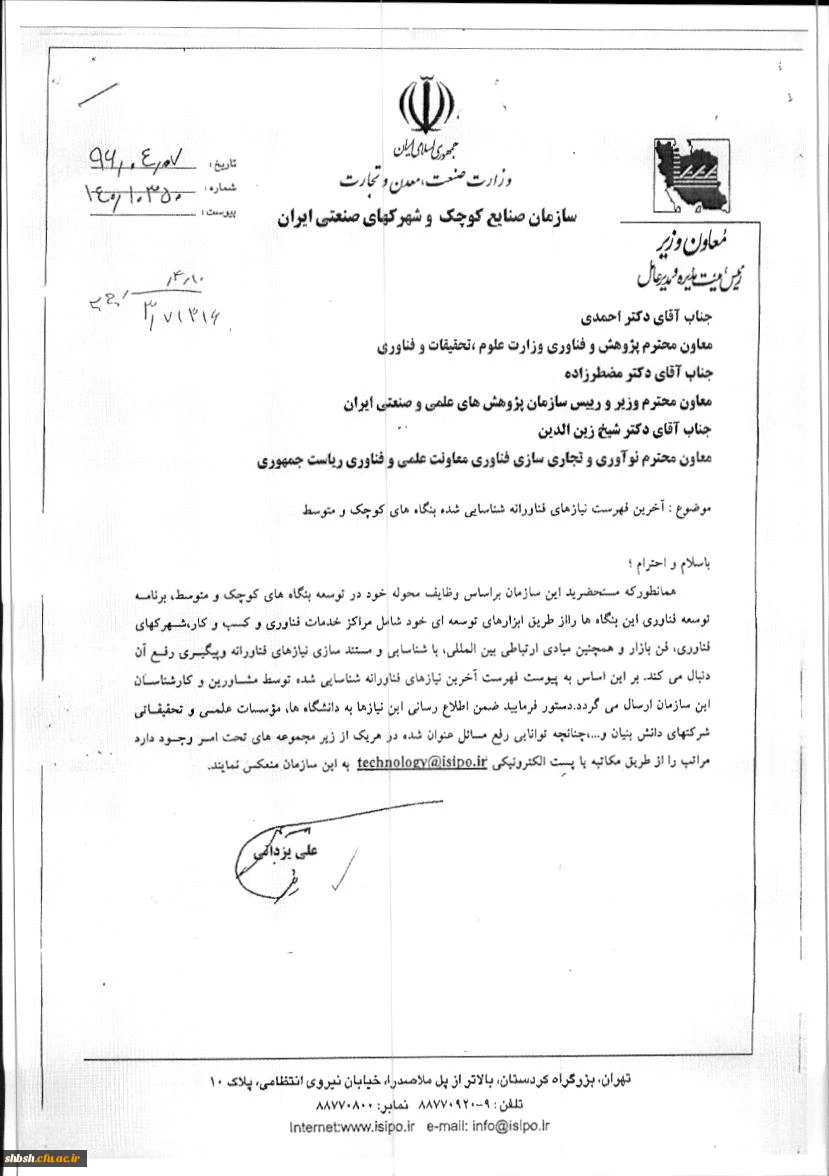 جمهوری اسلامی ایران
وزارت صنعت، معدن و تجارت
سازمان صنایع کوچک و شهرکهای صنعتی ایران
تاریخ : ۹۶,۰۴,۰۷
شماره : ۱۴۵,۱۰۳۵۰
پیوست :
معاون وزیر
رئیس هیئت مدیره و مدیرعامل
جناب آقای دکتر احمدی
معاون محترم پژوهش و فناوری وزارت علوم ،تحقیقات و فناوری
جناب آقای دکتر مضطرزاده
معاون محترم وزیر و رییس سازمان پژوهش های علمی و صنعتی ایران
جناب آقای دکتر شیخ زین الدین
معاون محترم نوآوری و تجاری سازی فناوری معاونت علمی و فناوری ریاست جمهوری
موضوع : آخرین فهرست نیازهای فناورانه شناسایی شده بنگاه های کوچک و متوسط
باسلام و احترام ؛
همانطورکه مستحضرید این سازمان براساس وظایف محوله خود در توسعه بنگاه های کوچک و متوسط، برنامه
توسعه فناوری این بنگاه ها رااز طریق ابزارهای توسعه ای خود شامل مراکز خدمات فناوری و کسب و کار،شهرکهای
فناوری، فن بازار و همچنین مبادی ارتباطی بین المللی، با شناسایی و مستند سازی نیازهای فناورانه وپیگیری رفع آن
دنبال می کند. بر این اساس به پیوست فهرست آخرین نیازهای فناورانه شناسایی شده توسط مشاورین و کارشناسان
این سازمان ارسال می گردد.دستور فرمایید ضمن اطلاع رسانی این نیازها به دانشگاه ها، مؤسسات علمی و تحقیقاتی
شرکتهای دانش بنیان و...،چنانچه توانایی رفع مسائل عنوان شده در هریک از زیر مجموعه های تحت امر وجود دارد
مراتب را از طریق مکاتبه یا پست الکترونیکی technology@isipo.ir به این سازمان منعکس نمایند.
علی یزدانی
تهران، بزرگراه کردستان، بالاتر از پل ملاصدرا، خیابان نیروی انتظامی، پلاک ۱۰
تلفن : ۹-۸۸۷۷۰۹۲۰ نمابر: ۸۸۷۷۰۸۰۰
Internet:www.isipo.ir e-mail: info@isipo.ir
shbsh.cfu.ac.ir